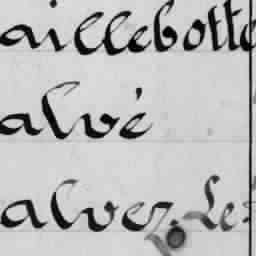 aillebotte
alvé
alvez. Le